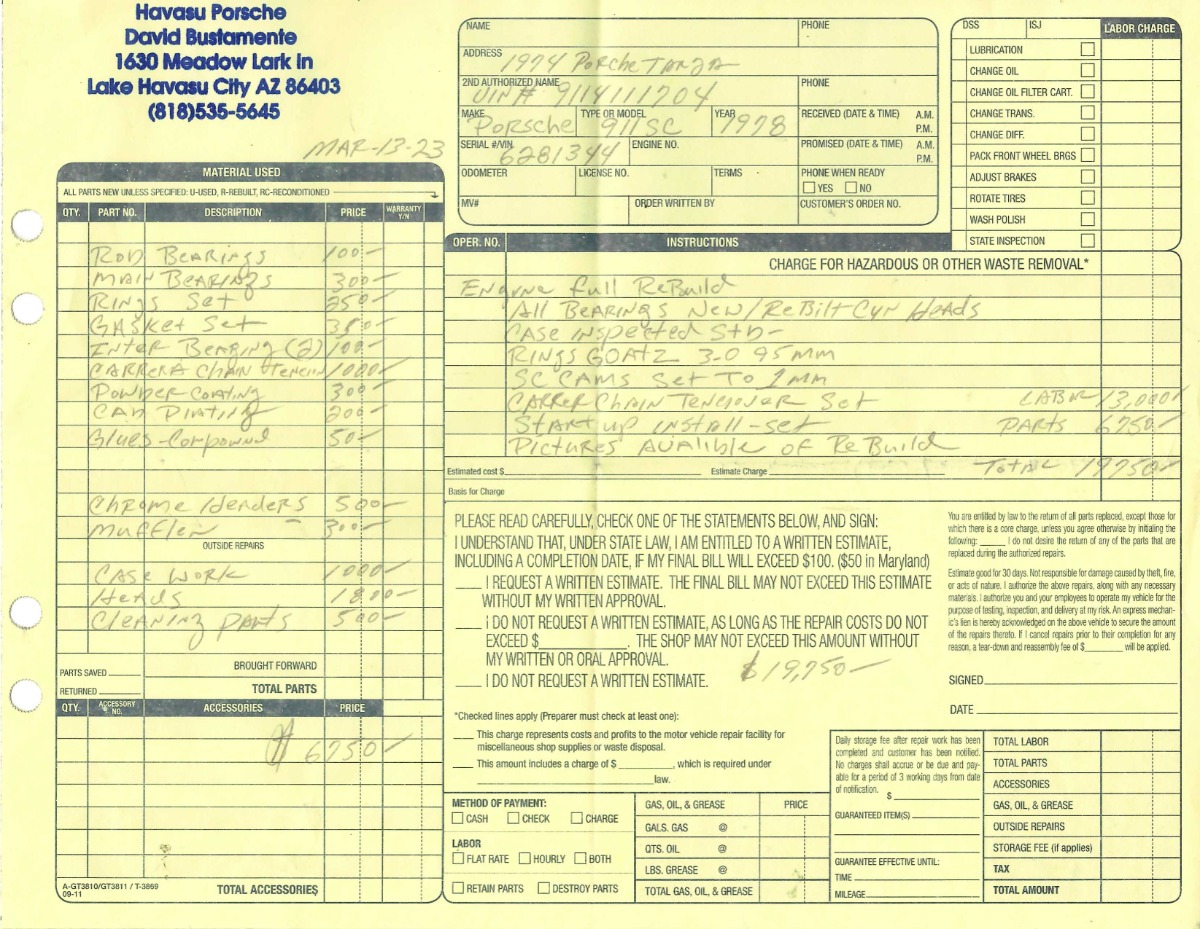 Havasu Porsche
David Bustamente
1630 Meadow Lark ln
Lake Havasu City AZ 86403
(818)535-5645
MAR-13-23
NAME
PHONE
ADDRESS
1974 Porche TARGA
2ND AUTHORIZED NAME
PHONE
VIN# 9114111704
MAKE TYPE OR MODEL YEAR
Porsche 911SC 1978
RECEIVED (DATE & TIME) A.M. P.M.
SERIAL #/VIN ENGINE NO.
6281344
PROMISED (DATE & TIME) A.M. P.M.
ODOMETER LICENSE NO. TERMS
PHONE WHEN READY
YES NO
MV# ORDER WRITTEN BY
CUSTOMER'S ORDER NO.
DSS ISJ LABOR CHARGE
LUBRICATION
CHANGE OIL
CHANGE OIL FILTER CART.
CHANGE TRANS.
CHANGE DIFF.
PACK FRONT WHEEL BRGS
ADJUST BRAKES
ROTATE TIRES
WASH POLISH
STATE INSPECTION
MATERIAL USED
ALL PARTS NEW UNLESS SPECIFIED: U-USED, R-REBUILT, RC-RECONDITIONED
QTY. PART NO. DESCRIPTION PRICE WARRANTY Y/N
Rod Bearings 100-
Main Bearings 300-
Rings Set 250-
Gasket Set 350-
Inter Bearing (2) 100-
CARRERA Chain Tencion 1000-
Powder Coating 300-
CAD Plating 200-
Glues-Compound 50-
Chrome Headers 500-
Muffler 300-
OUTSIDE REPAIRS
Case Work 1000-
Heads 1800-
Cleaning parts 500-
PARTS SAVED
BROUGHT FORWARD
RETURNED
TOTAL PARTS
QTY. ACCESSORY NO. ACCESSORIES PRICE
$ 6750-
A-GT3810/GT3811 / T-3869
09-11
TOTAL ACCESSORIES
OPER. NO. INSTRUCTIONS
CHARGE FOR HAZARDOUS OR OTHER WASTE REMOVAL*
Engine full ReBuild
All Bearings New/ReBilt Cyn Heads
Case inspected Std-
Rings GOATZ 3-0 95mm
SC CAMS set To 1mm
CARRER Chain Tencioner Set LABR 13,000-
Start up install-set PARTS 6750-
Pictures Avalible of ReBuild
Estimated cost $ Estimate Charge
Total 19750-
Basis for Charge
PLEASE READ CAREFULLY, CHECK ONE OF THE STATEMENTS BELOW, AND SIGN:
I UNDERSTAND THAT, UNDER STATE LAW, I AM ENTITLED TO A WRITTEN ESTIMATE,
INCLUDING A COMPLETION DATE, IF MY FINAL BILL WILL EXCEED $100. ($50 in Maryland)
I REQUEST A WRITTEN ESTIMATE. THE FINAL BILL MAY NOT EXCEED THIS ESTIMATE
WITHOUT MY WRITTEN APPROVAL.
I DO NOT REQUEST A WRITTEN ESTIMATE, AS LONG AS THE REPAIR COSTS DO NOT
EXCEED $ . THE SHOP MAY NOT EXCEED THIS AMOUNT WITHOUT
MY WRITTEN OR ORAL APPROVAL.
$19,750-
I DO NOT REQUEST A WRITTEN ESTIMATE.
*Checked lines apply (Preparer must check at least one):
This charge represents costs and profits to the motor vehicle repair facility for
miscellaneous shop supplies or waste disposal.
This amount includes a charge of $ , which is required under
law.
You are entitled by law to the return of all parts replaced, except those for
which there is a core charge, unless you agree otherwise by initialing the
following: I do not desire the return of any of the parts that are
replaced during the authorized repairs.
Estimate good for 30 days. Not responsible for damage caused by theft, fire,
or acts of nature. I authorize the above repairs, along with any necessary
materials. I authorize you and your employees to operate my vehicle for the
purpose of testing, inspection, and delivery at my risk. An express mechan-
ic's lien is hereby acknowledged on the above vehicle to secure the amount
of the repairs thereto. If I cancel repairs prior to their completion for any
reason, a tear-down and reassembly fee of $ will be applied.
SIGNED
DATE
METHOD OF PAYMENT:
CASH CHECK CHARGE
LABOR
FLAT RATE HOURLY BOTH
RETAIN PARTS DESTROY PARTS
GAS, OIL, & GREASE PRICE
GALS. GAS @
QTS. OIL @
LBS. GREASE @
TOTAL GAS, OIL, & GREASE
Daily storage fee after repair work has been
completed and customer has been notified.
No charges shall accrue or be due and pay-
able for a period of 3 working days from date
of notification.
$
GUARANTEED ITEM(S)
GUARANTEE EFFECTIVE UNTIL:
TIME
MILEAGE
TOTAL LABOR
TOTAL PARTS
ACCESSORIES
GAS, OIL, & GREASE
OUTSIDE REPAIRS
STORAGE FEE (if applies)
TAX
TOTAL AMOUNT